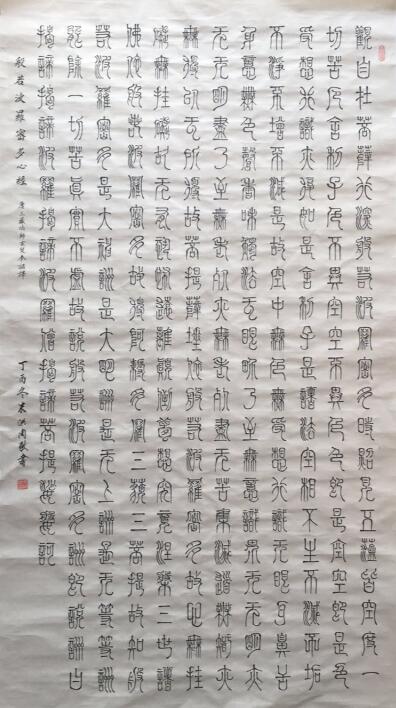 觀自在菩薩行深般若波羅蜜多時照見五蘊皆空度一
切苦厄舍利子色不異空空不異色色即是空空即是色
受想行識亦復如是舍利子是諸法空相不生不滅不垢
不淨不增不減是故空中无色无受想行識无眼耳鼻舌
身意無色聲香味觸法无眼界乃至無意識界无無明亦
无无明盡乃至無老死亦無老死盡无苦集滅道無智亦
無得以无所得故菩提薩埵依般若波羅蜜多故心無罣
礙無罣礙故无有恐怖遠離顛倒夢想究竟涅槃三世諸
佛依般若波羅蜜多故得阿耨多羅三藐三菩提故知般
若波羅蜜多是大神咒是大明咒是无上咒是无等等咒
能除一切苦真實不虛故說般若波羅蜜多咒即說咒曰
揭諦揭諦波羅揭諦波羅僧揭諦菩提薩婆訶
般若波羅蜜多心經 唐三藏法師玄奘奉詔譯 丁酉冬 敬書